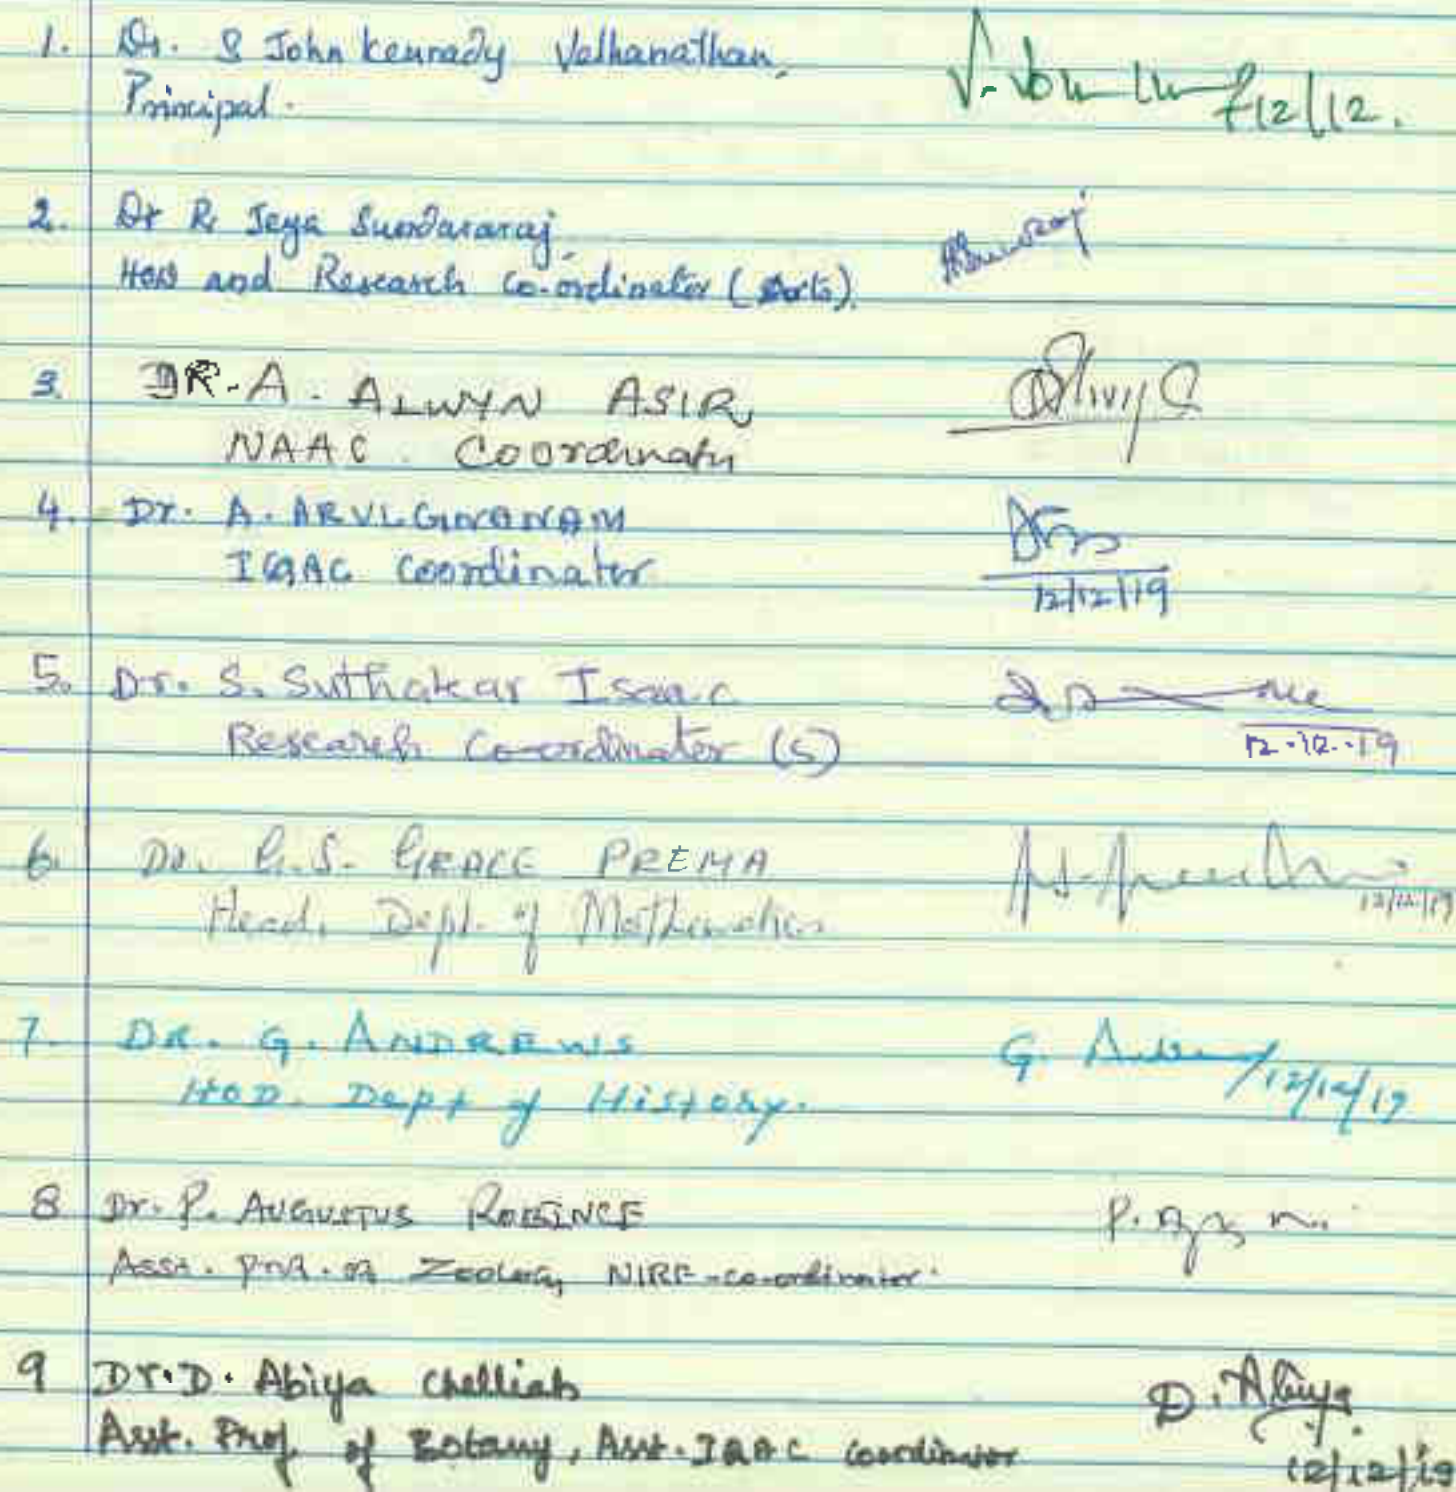 1. Dr. S John Kennady Vethanathan,
Principal.
12/12.
2. Dr R. Jeya Sundararaj,
HOD and Research Co-ordinator (Arts).
3. DR. A. ALWYN ASIR
NAAC Coordinator
4. Dr. A. ARULGNANAM
IQAC Coordinator
12/12/19
5. Dr. S. Suthakar Isaac
Research Co-ordinator (S)
12.12.19
6. Dr. G.S. GRACE PREMA
Head, Dept. of Mathematics
12/12/19
7. DR. G. ANDREWS G. Andrews
HOD. Dept of History. 12/12/19
8 Dr. P. AUGUSTUS ROBINCE P.
Asst. Prof. of Zoology NIRF-co-ordinator.
9 Dr. D. Abiya Chelliah D. Abiya
Asst. Prof. of Botany, Asst. IQAC Coordinator 12/12/19